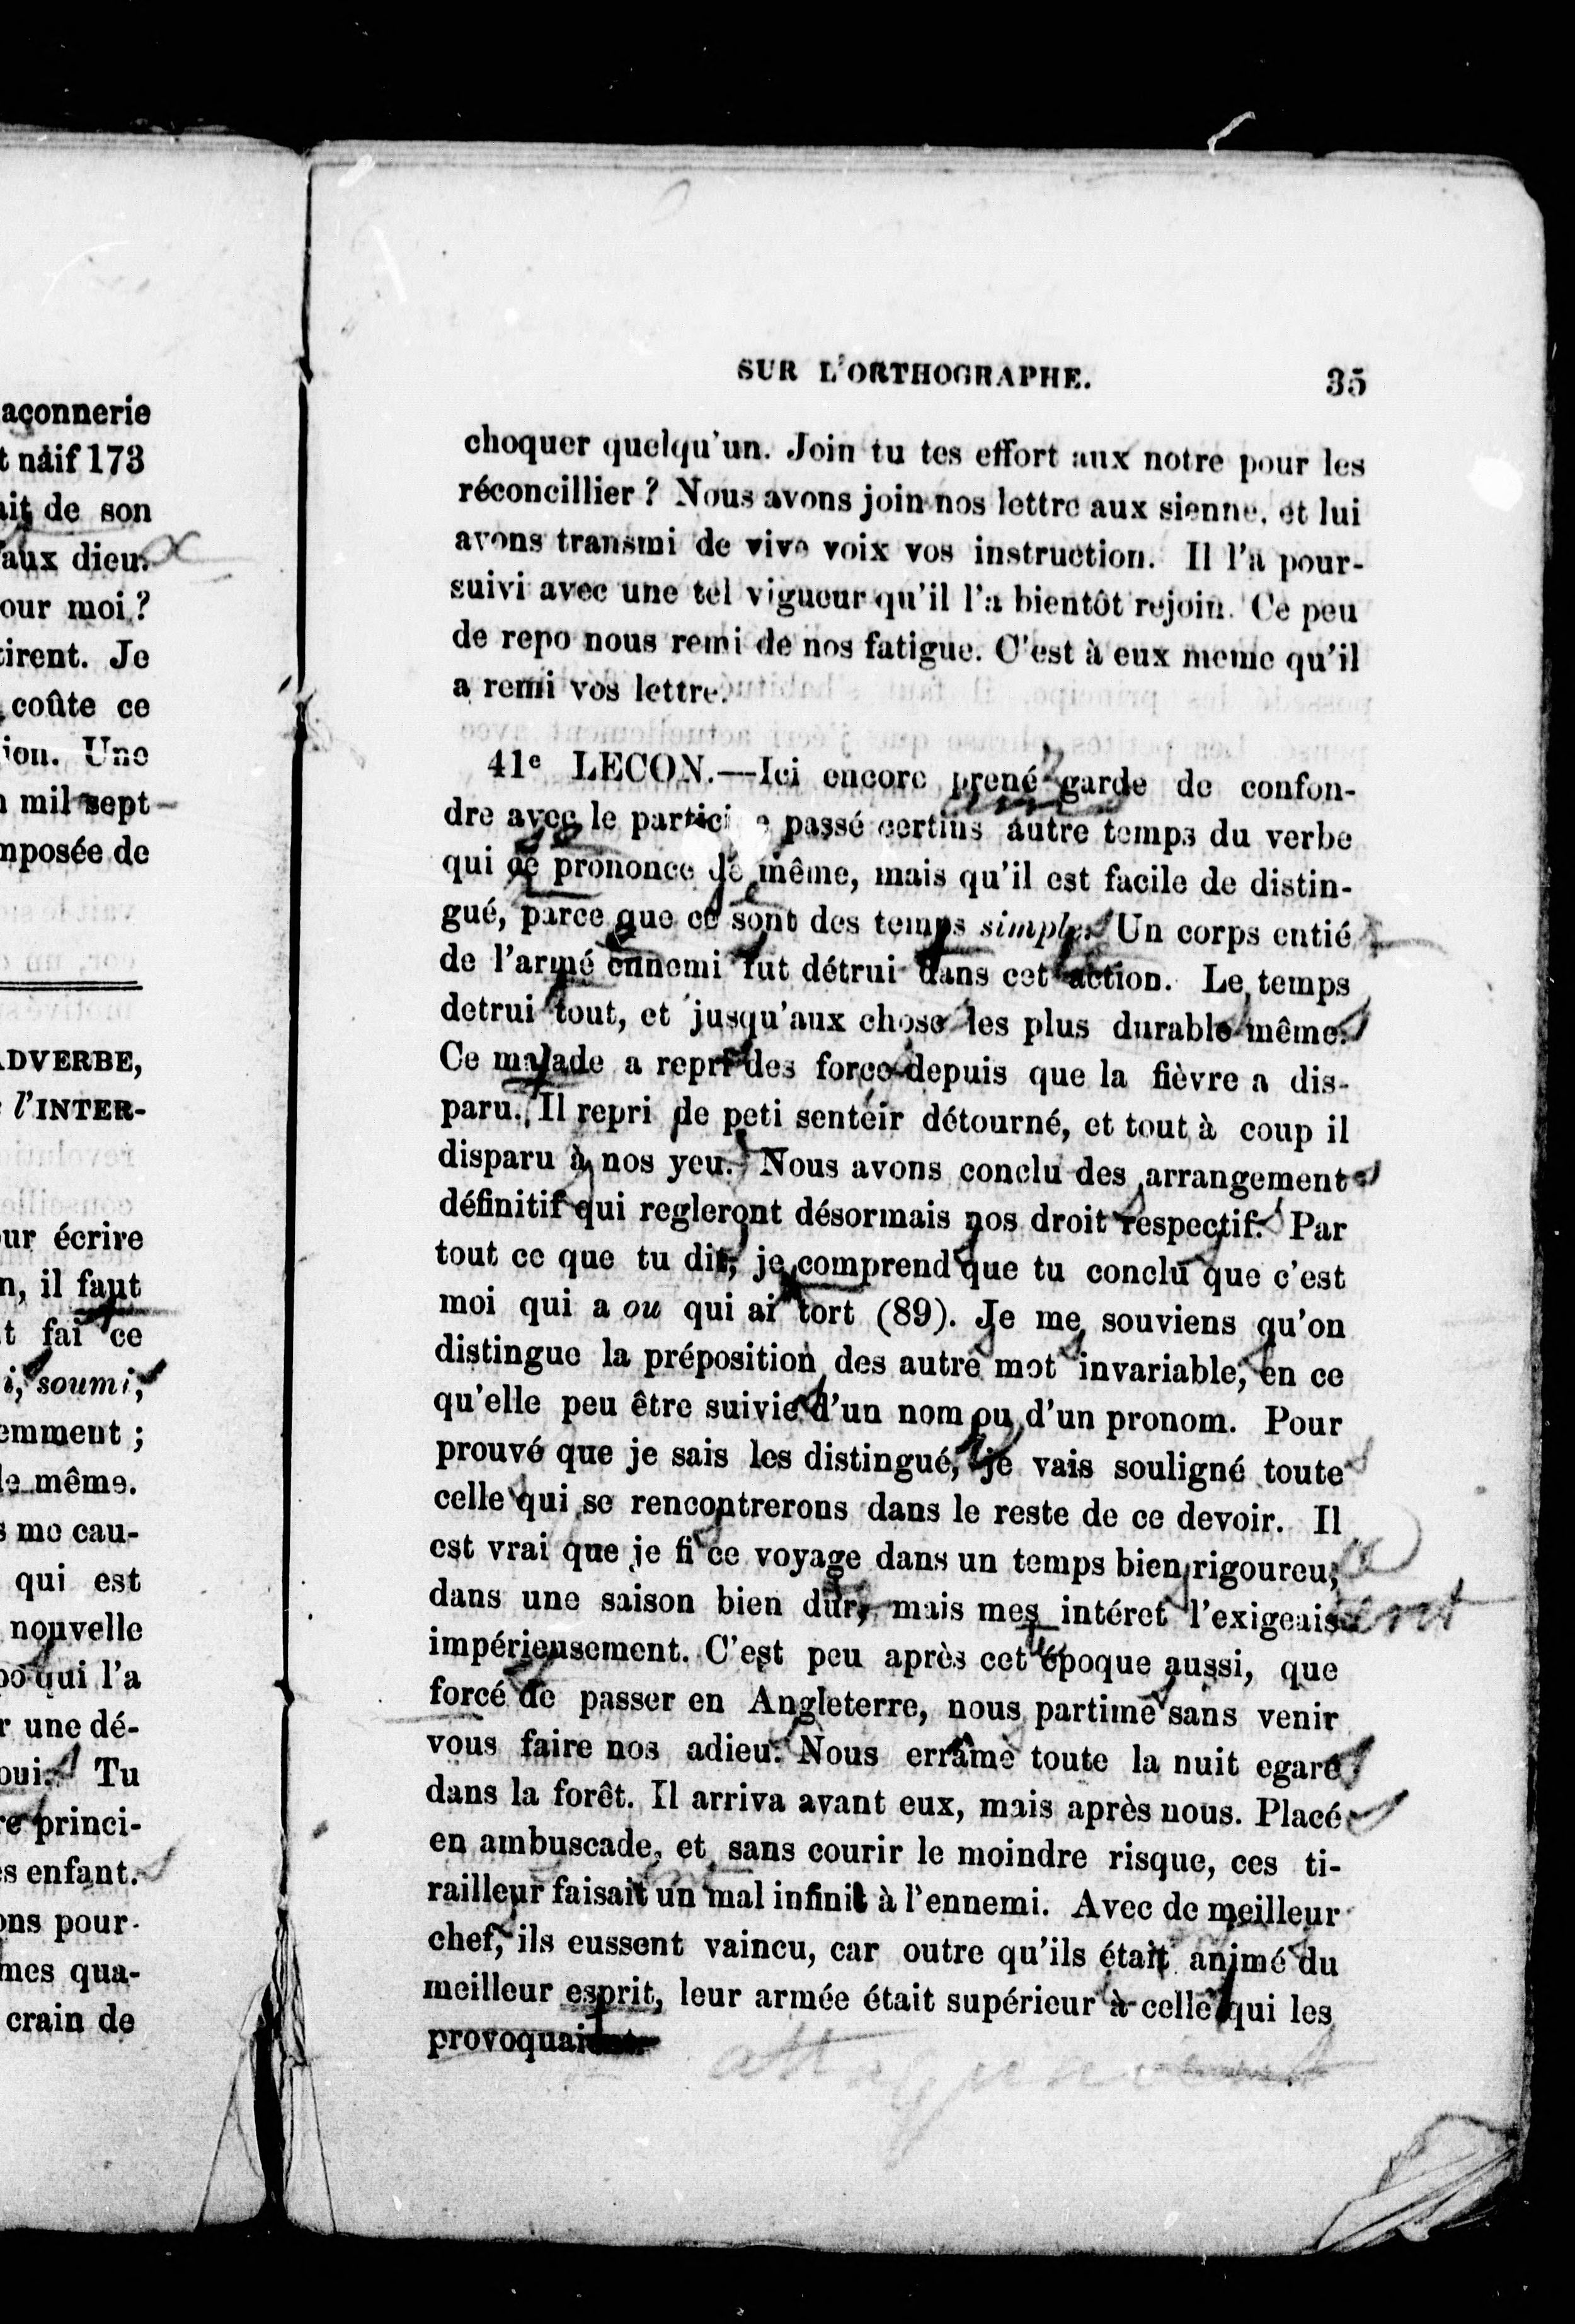 açonnerie
t nàif 173
ait de son
aux dieu.
our moi ?
tirent. Je
coûte ce
ion. Une
mil sept
mposée de
ADVERBE,
l'INTER-
ur écrire
n, il faut
t fai ce
i, soumi,
emment ;
le même.
s me cau-
qui est
nouvelle
po qui l'a
r une dé-
oui. Tu
re princi-
es enfant.
ons pour-
mes qua-
crain de
SUR L'ORTHOGRAPHE. 35
choquer quelqu'un. Join tu tes effort aux notre pour les
réconcillier ? Nous avons join nos lettre aux sienne, et lui
avons transmi de vive voix vos instruction. Il l'a pour-
suivi avec une tel vigueur qu'il l'a bientôt rejoin. Ce peu
de repo nous remi de nos fatigue. C'est à eux meme qu'il
a remi vos lettre.
41e LECON.—Ici encore prené garde de confon-
dre avec le passé certins autre temps du verbe
qui ce prononce de même, mais qu'il est facile de distin-
gué, parce que ce sont des temps simple. Un corps entié
de l'armé ennemi fut détrui dans cet action. Le temps
detrui tout, et jusqu'aux chose les plus durable même.
Ce malade a repri des force depuis que la fièvre a dis-
paru. Il repri de peti sentéir détourné, et tout à coup il
disparu à nos yeu. Nous avons conclu des arrangement
définitif qui regleront désormais nos droit respectif. Par
tout ce que tu dit, je comprend que tu conclu que c'est
moi qui a ou qui ai tort (89). Je me souviens qu'on
distingue la préposition des autre mot invariable, en ce
qu'elle peu être suivie d'un nom ou d'un pronom. Pour
prouvé que je sais les distingué, je vais souligné toute
celle qui se rencontrerons dans le reste de ce devoir. Il
est vrai que je fi ce voyage dans un temps bien rigoureu,
dans une saison bien dur, mais mes intéret l'exigeais ent
impérieusement. C'est peu après cet époque aussi, que
forcé de passer en Angleterre, nous partime sans venir
vous faire nos adieu. Nous errâme toute la nuit egaré
dans la forêt. Il arriva avant eux, mais après nous. Placé
en ambuscade, et sans courir le moindre risque, ces ti-
railleur faisait un mal infinit à l'ennemi. Avec de meilleur
chef, ils eussent vaincu, car outre qu'ils était animé du
meilleur esprit, leur armée était supérieur à celle qui les